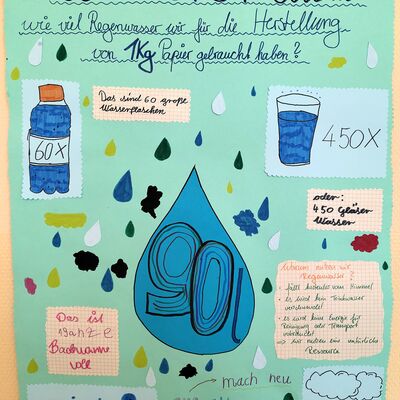 wie viel Regenwasser wir für die Herstellung
von 1Kg Papier gebraucht haben?
Das sind 60 große
Wasserflaschen
60x
450x
oder:
450 Gläser
Wasser
90l
Warum nutzen wir
Regenwasser?
• fällt kostenlos vom Himmel
• es wird kein Trinkwasser
verschwendet
• es wird kein Energie für
Reinigung oder Transport
verbraucht
⇒ wir nutzen eine natürliche
Ressource
Das ist
1 ganze
Badewanne
voll
mach neu